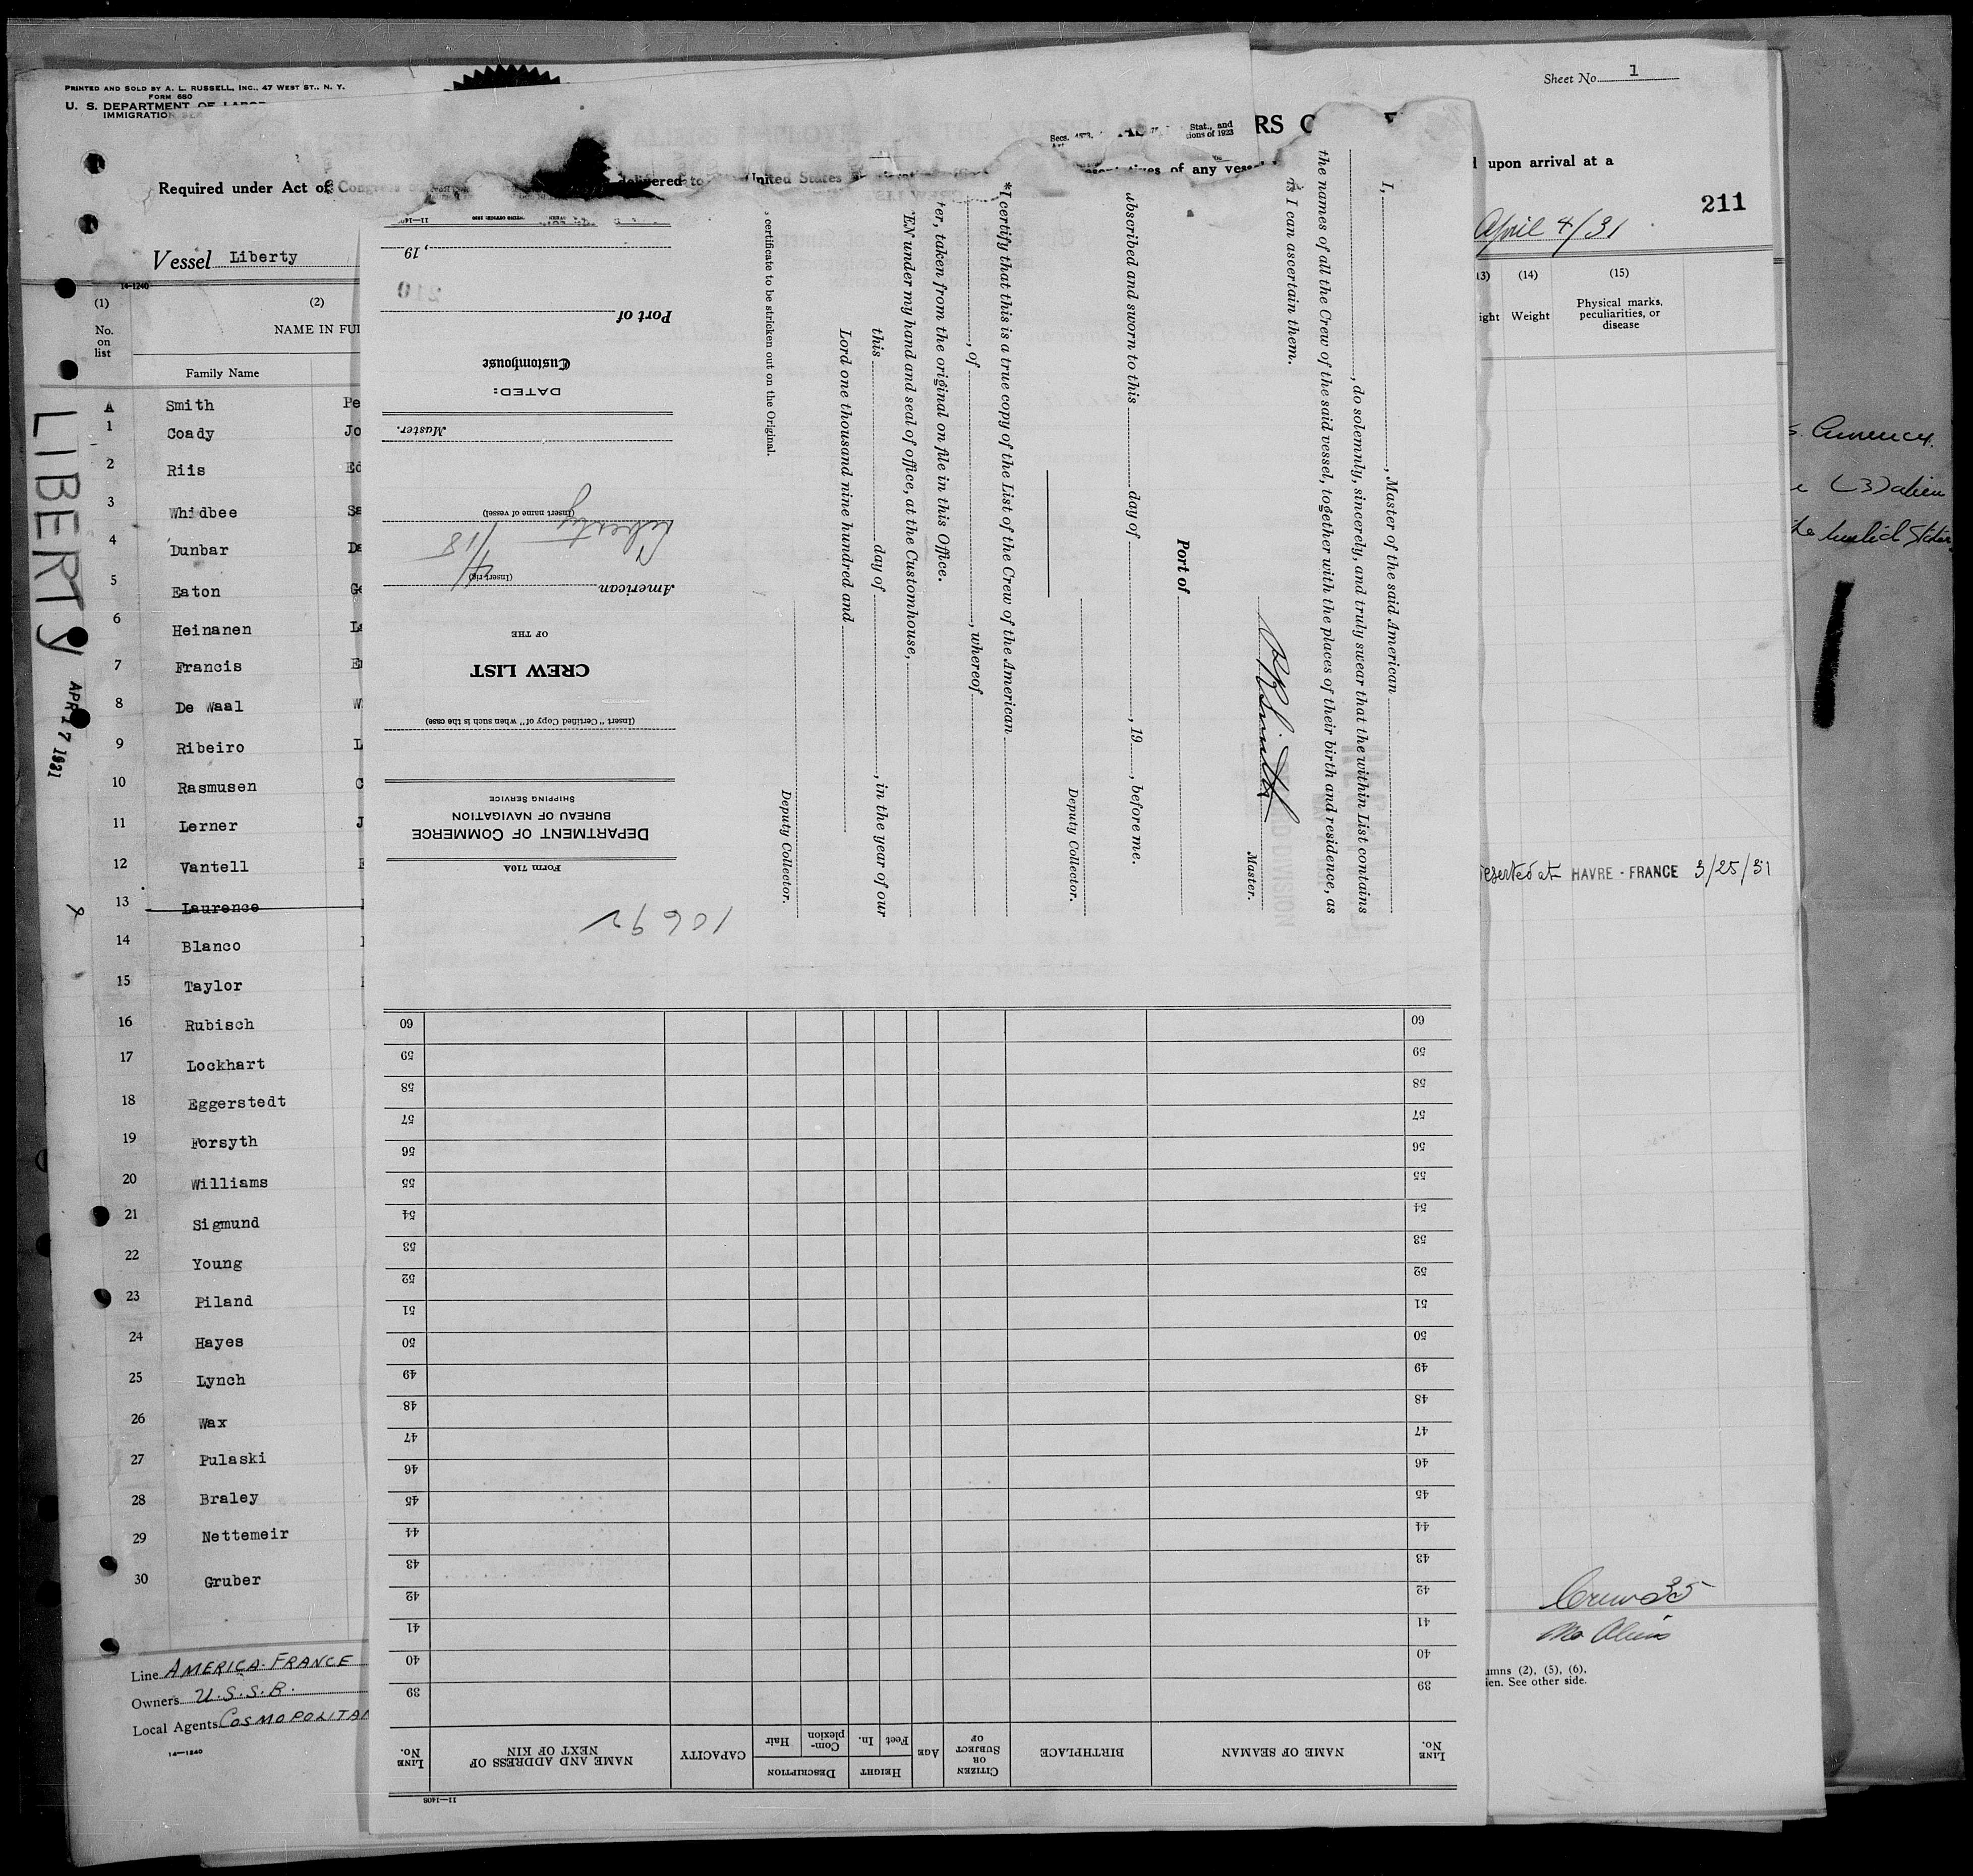 PRINTED AND SOLD BY A. L. RUSSELL, INC., 47 WEST ST., N. Y.
FORM 680
U. S. DEPARTMENT OF LABOR
IMMIGRATION
Sheet No. 1
RS
Secs. 4573,
Stat., and
ions of 1923
Required under Act of Congress
delivered to
United States
of any vessel
upon arrival at a
211
April 4/31
Vessel Liberty
14-1240
(1)
No.
on
list
(2)
NAME IN FUL
Family Name
13)
ight
(14)
Weight
(15)
Physical marks,
peculiarities, or
disease
A Smith Pe
1 Coady Jo
2 Riis Ed
3 Whidbee Sa
4 Dunbar Da
5 Eaton Ge
6 Heinanen
7 Francis
8 De Waal W
9 Ribeiro L
10 Rasmusen
11 Lerner J
12 Vantell
13 Laurence
14 Blanco
15 Taylor
16 Rubisch
17 Lockhart
18 Eggerstedt
19 Forsyth
20 Williams
21 Sigmund
22 Young
23 Piland
24 Hayes
25 Lynch
26 Wax
27 Pulaski
28 Braley
29 Nettemeir
30 Gruber
LIBERTY
APR 17 1931
Line AMERICA-FRANCE
Owners U.S.S.B.
Local Agents COSMOPOLITAN
14-1240
eserted at HAVRE - FRANCE 3/25/31
Crew 35
No Aliens
umns (2), (5), (6),
ien. See other side.
(3) alien
the United States
I, , Master of the said American
, do solemnly, sincerely, and truly swear that the within List contains
the names of all the Crew of the said vessel, together with the places of their birth and residence, as
as I can ascertain them.
Master.
Port of
ubscribed and sworn to this day of , 19 , before me.
Deputy Collector.
*I certify that this is a true copy of the List of the Crew of the American
, of , whereof
ter, taken from the original on file in this Office.
EN under my hand and seal of office, at the Customhouse,
this day of , in the year of our
Lord one thousand nine hundred and
Deputy Collector.
certificate to be stricken out on the Original.
10692
Form 710A
DEPARTMENT OF COMMERCE
BUREAU OF NAVIGATION
SHIPPING SERVICE
(Insert "Certified Copy of" when such is the case)
CREW LIST
OF THE
American
(Insert rig)
4/18
Liberty
(Insert name of vessel)
Master.
DATED:
Customhouse
Port of
210
, 19
11-1408
LINE
No.
NAME OF SEAMAN
BIRTHPLACE
CITIZEN
OR
SUBJECT
OF
AGE
HEIGHT
Feet
In.
DESCRIPTION
Com-
plexion
Hair
CAPACITY
NAME AND ADDRESS OF
NEXT OF KIN
LINE
No.
39 39
40 40
41 41
42 42
43 43
44 44
45 45
46 46
47 47
48 48
49 49
50 50
51 51
52 52
53 53
54 54
55 55
56 56
57 57
58 58
59 59
60 60